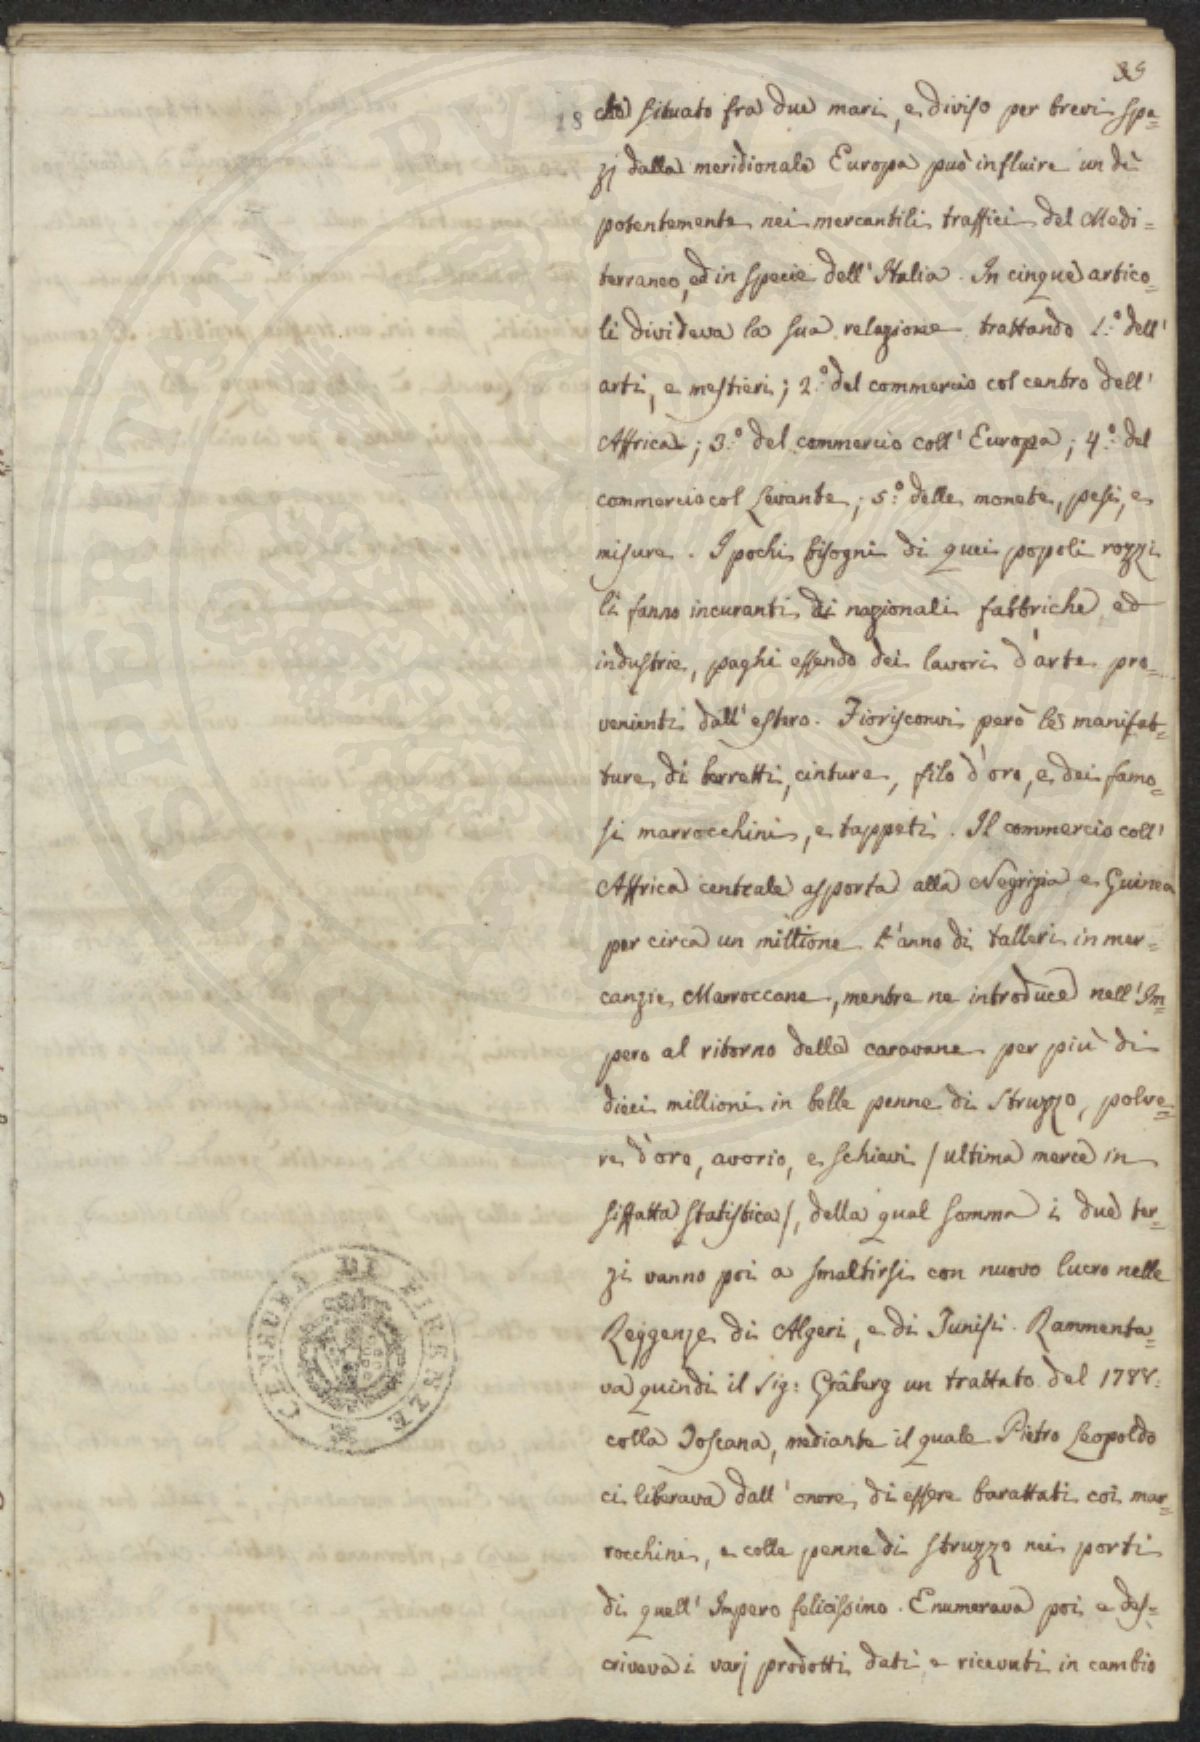 39
18
che situato fra due mari, e diviso per brevi spa=
zj dalla meridionale Europa può influire un dì
potentemente nei mercantili traffici del Medi=
terraneo, ed in specie dell' Italia. In cinque artico=
li divideva la sua relazione trattando 1.º dell'
arti, e mestieri; 2.º del commercio col centro dell'
Affrica; 3.º del commercio coll' Europa; 4.º del
commercio col Levante; 5.º delle monete, pesi, e
misure. I pochi bisogni di quei popoli rozzi
li fanno incuranti di nazionali fabbriche ed
industrie, paghi essendo dei lavori d'arte pro=
venienti dall' estero. Fiorisconvi però le manifat=
ture di berretti, cinture, filo d'oro, e dei famo=
si marrocchini, e tappeti. Il commercio coll'
Affrica centrale asporta alla Negrizia e Guinea
per circa un millione l'anno di talleri in mer=
canzie Marroccane, mentre ne introduce nell' Im=
pero al ritorno delle caravane per più di
dieci millioni in belle penne di struzzo, polve=
re d'oro, avorio, e schiavi / ultima merce in
siffatta statistica /, della qual somma i due ter=
zi vanno poi a smaltirsi con nuovo lucro nelle
Reggenze di Algeri, e di Tunisi. Rammenta=
va quindi il Sig: Gråberg un trattato del 1788.
colla Toscana, mediante il quale Pietro Leopoldo
ci liberava dall' onore di essere barattati coi mar=
rocchini, e colle penne di struzzo nei porti
di quell' Impero felicissimo. Enumerava poi e des=
criveva i varj prodotti dati e ricevuti in cambio
CENSURA DI FIRENZE